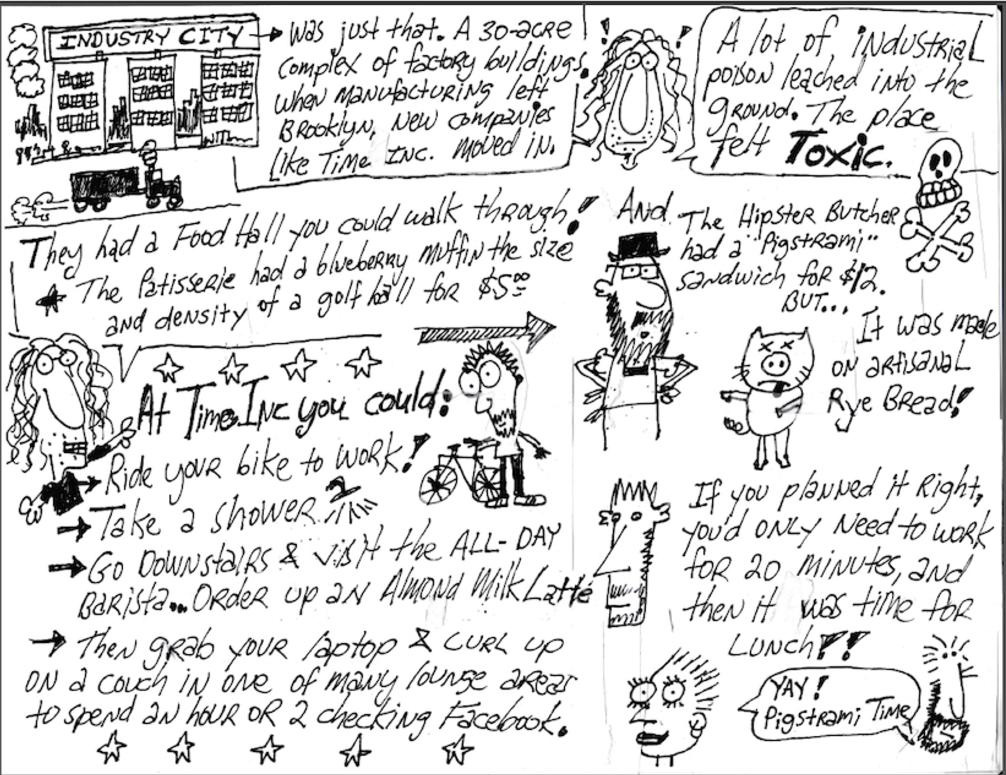 INDUSTRY CITY
Was just that. A 30-acre
complex of factory buildings.
When manufacturing left
Brooklyn, New companies
like Time Inc. moved in.
! !
A lot of industrial
poison leached into the
ground. The place
felt Toxic.
They had a Food Hall you could walk through!
The Patisserie had a blueberry muffin the size
and density of a golf ball for $5.00
And
The Hipster Butcher
had a "Pigstrami"
sandwich for $12.
BUT...
It was made
on artisanal
Rye Bread!
At Time Inc you could:
Ride your bike to work!
Take a shower
Go Downstairs & visit the ALL-DAY
Barista... Order up an Almond Milk Latté
Then grab your laptop & curl up
on a couch in one of many lounge areas
to spend an hour or 2 checking Facebook.
If you planned it right,
you'd only need to work
for 20 minutes, and
then it was time for
LUNCH!!
YAY!
Pigstrami Time